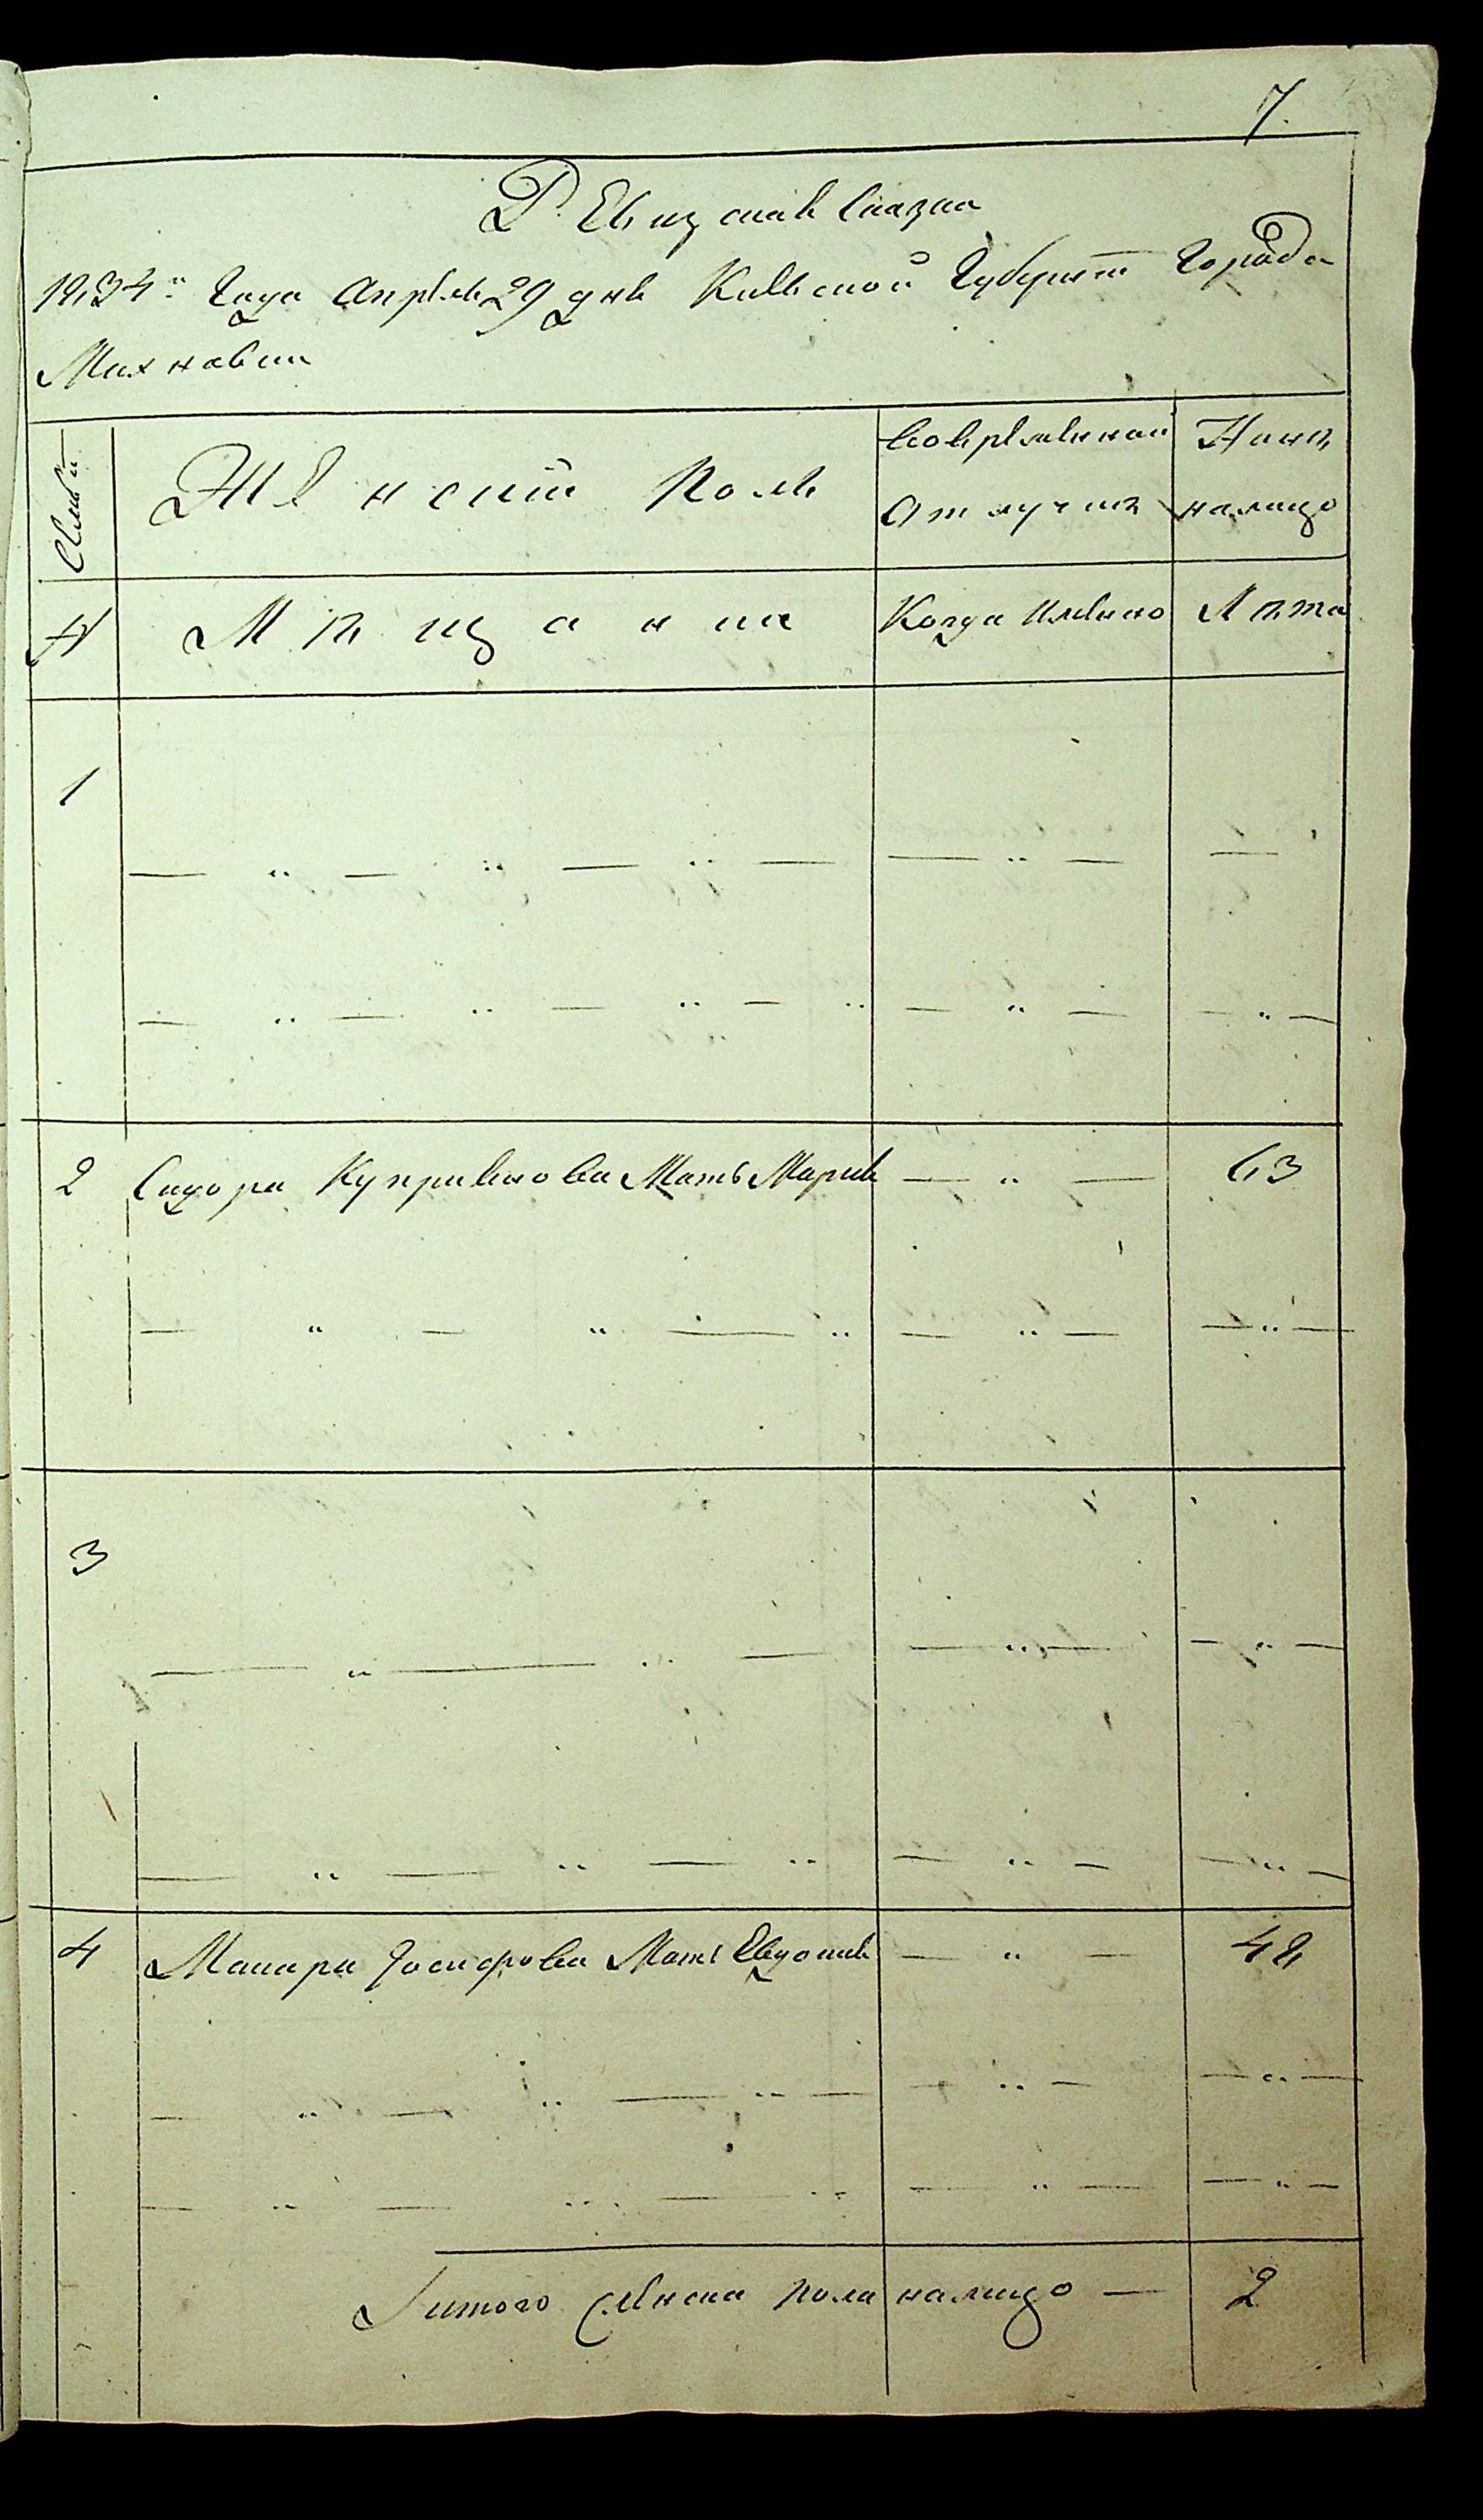 7.
Ревизская Сказка
1834го Года Апреля 29 дня Киевской Губернии Города
Махновки
Семьи
Женский Полъ
Во временной
Отлучкѣ
Нынѣ
налицо
№
Мѣщане
Когда имянно
Лѣта
1
2 Сидора Куприянова Мать Мария — „ — 63
3
4 Макара Іосифова Мать Евдокия — „ — 48
Итого женска пола налицо — 2